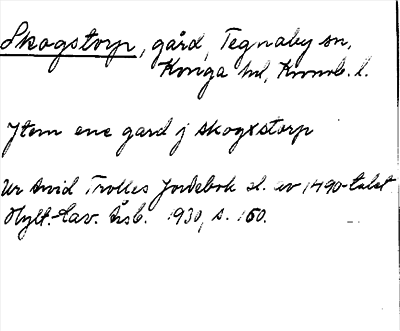 Skogstorp, gård, Tegnaby sn,
Konga hd, Kronob. l.
Jtem ene gard j skogxstorp
Ur Arvid Trolles Jordebok sl. av 1490-talet.
Hylt.-Cav. Årsb. 1930, s. 160.